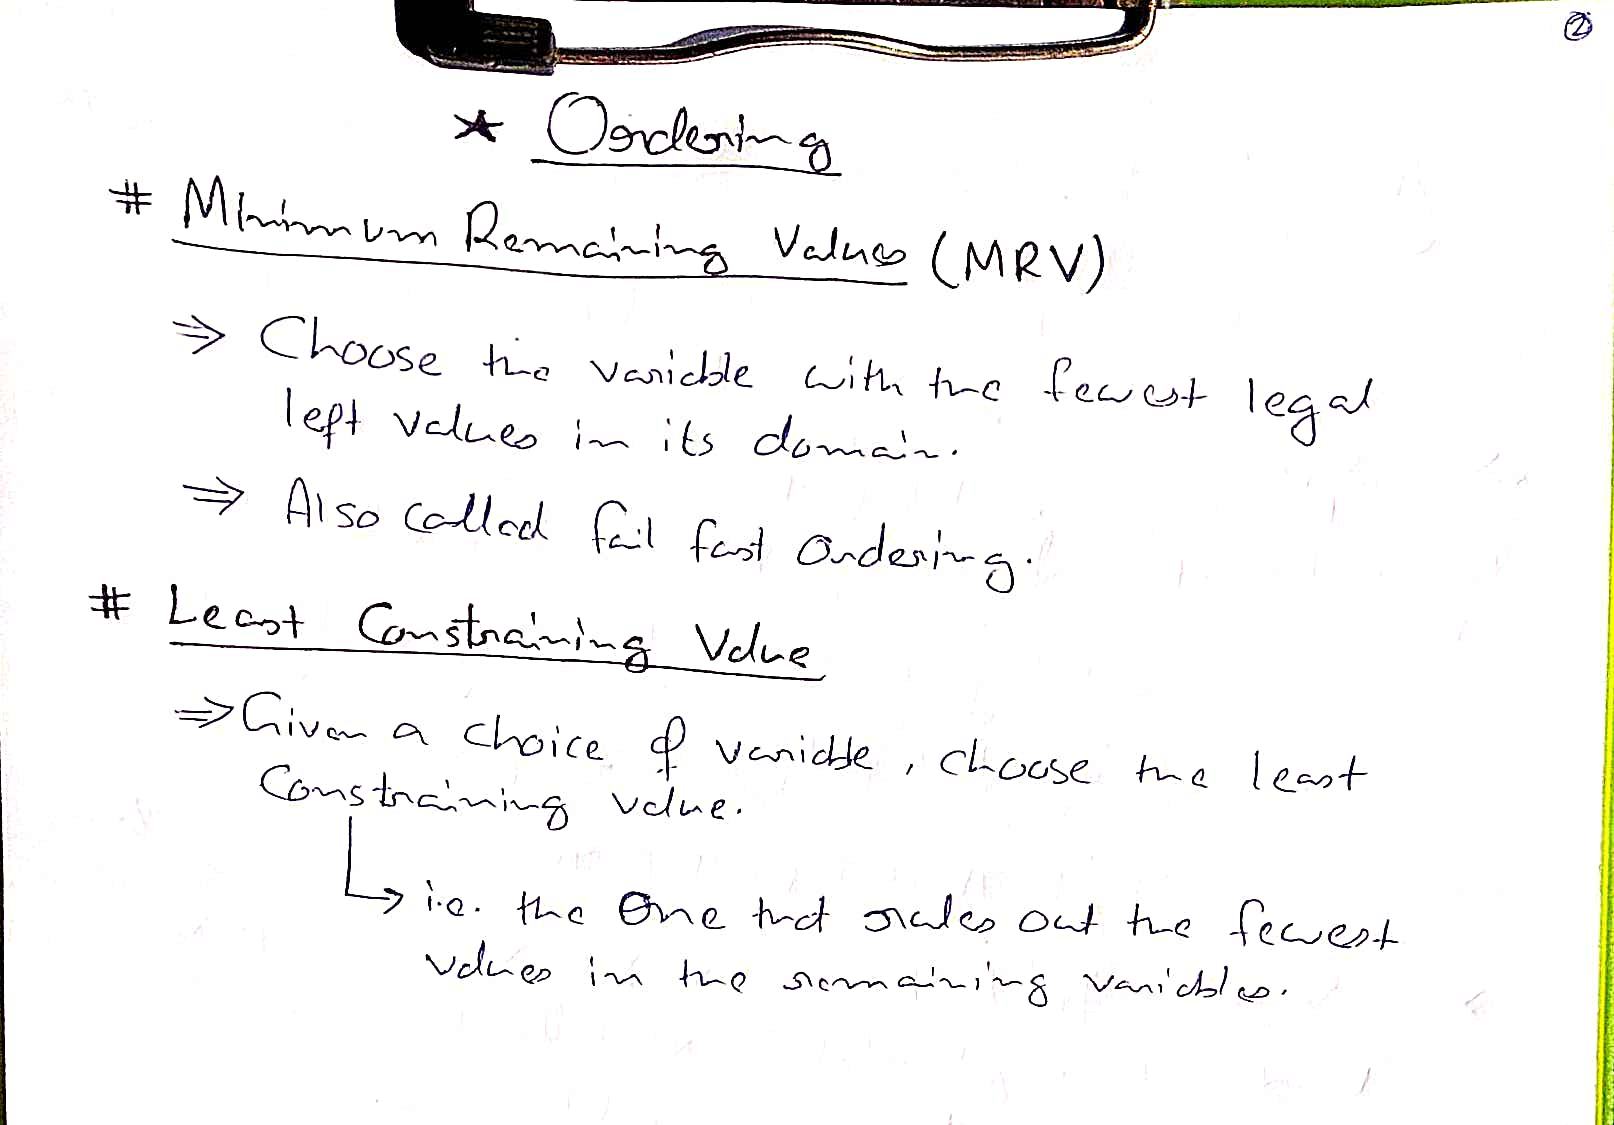 ②
* Ordering
# Minimum Remaining Values (MRV)
⇒ Choose the variable with the fewest legal
left values in its domain.
⇒ Also called fail fast ordering.
# Least Constraining Value
⇒ Given a choice of variable, choose the least
Constraining value.
↳ i.e. the one that rules out the fewest
values in the remaining variables.